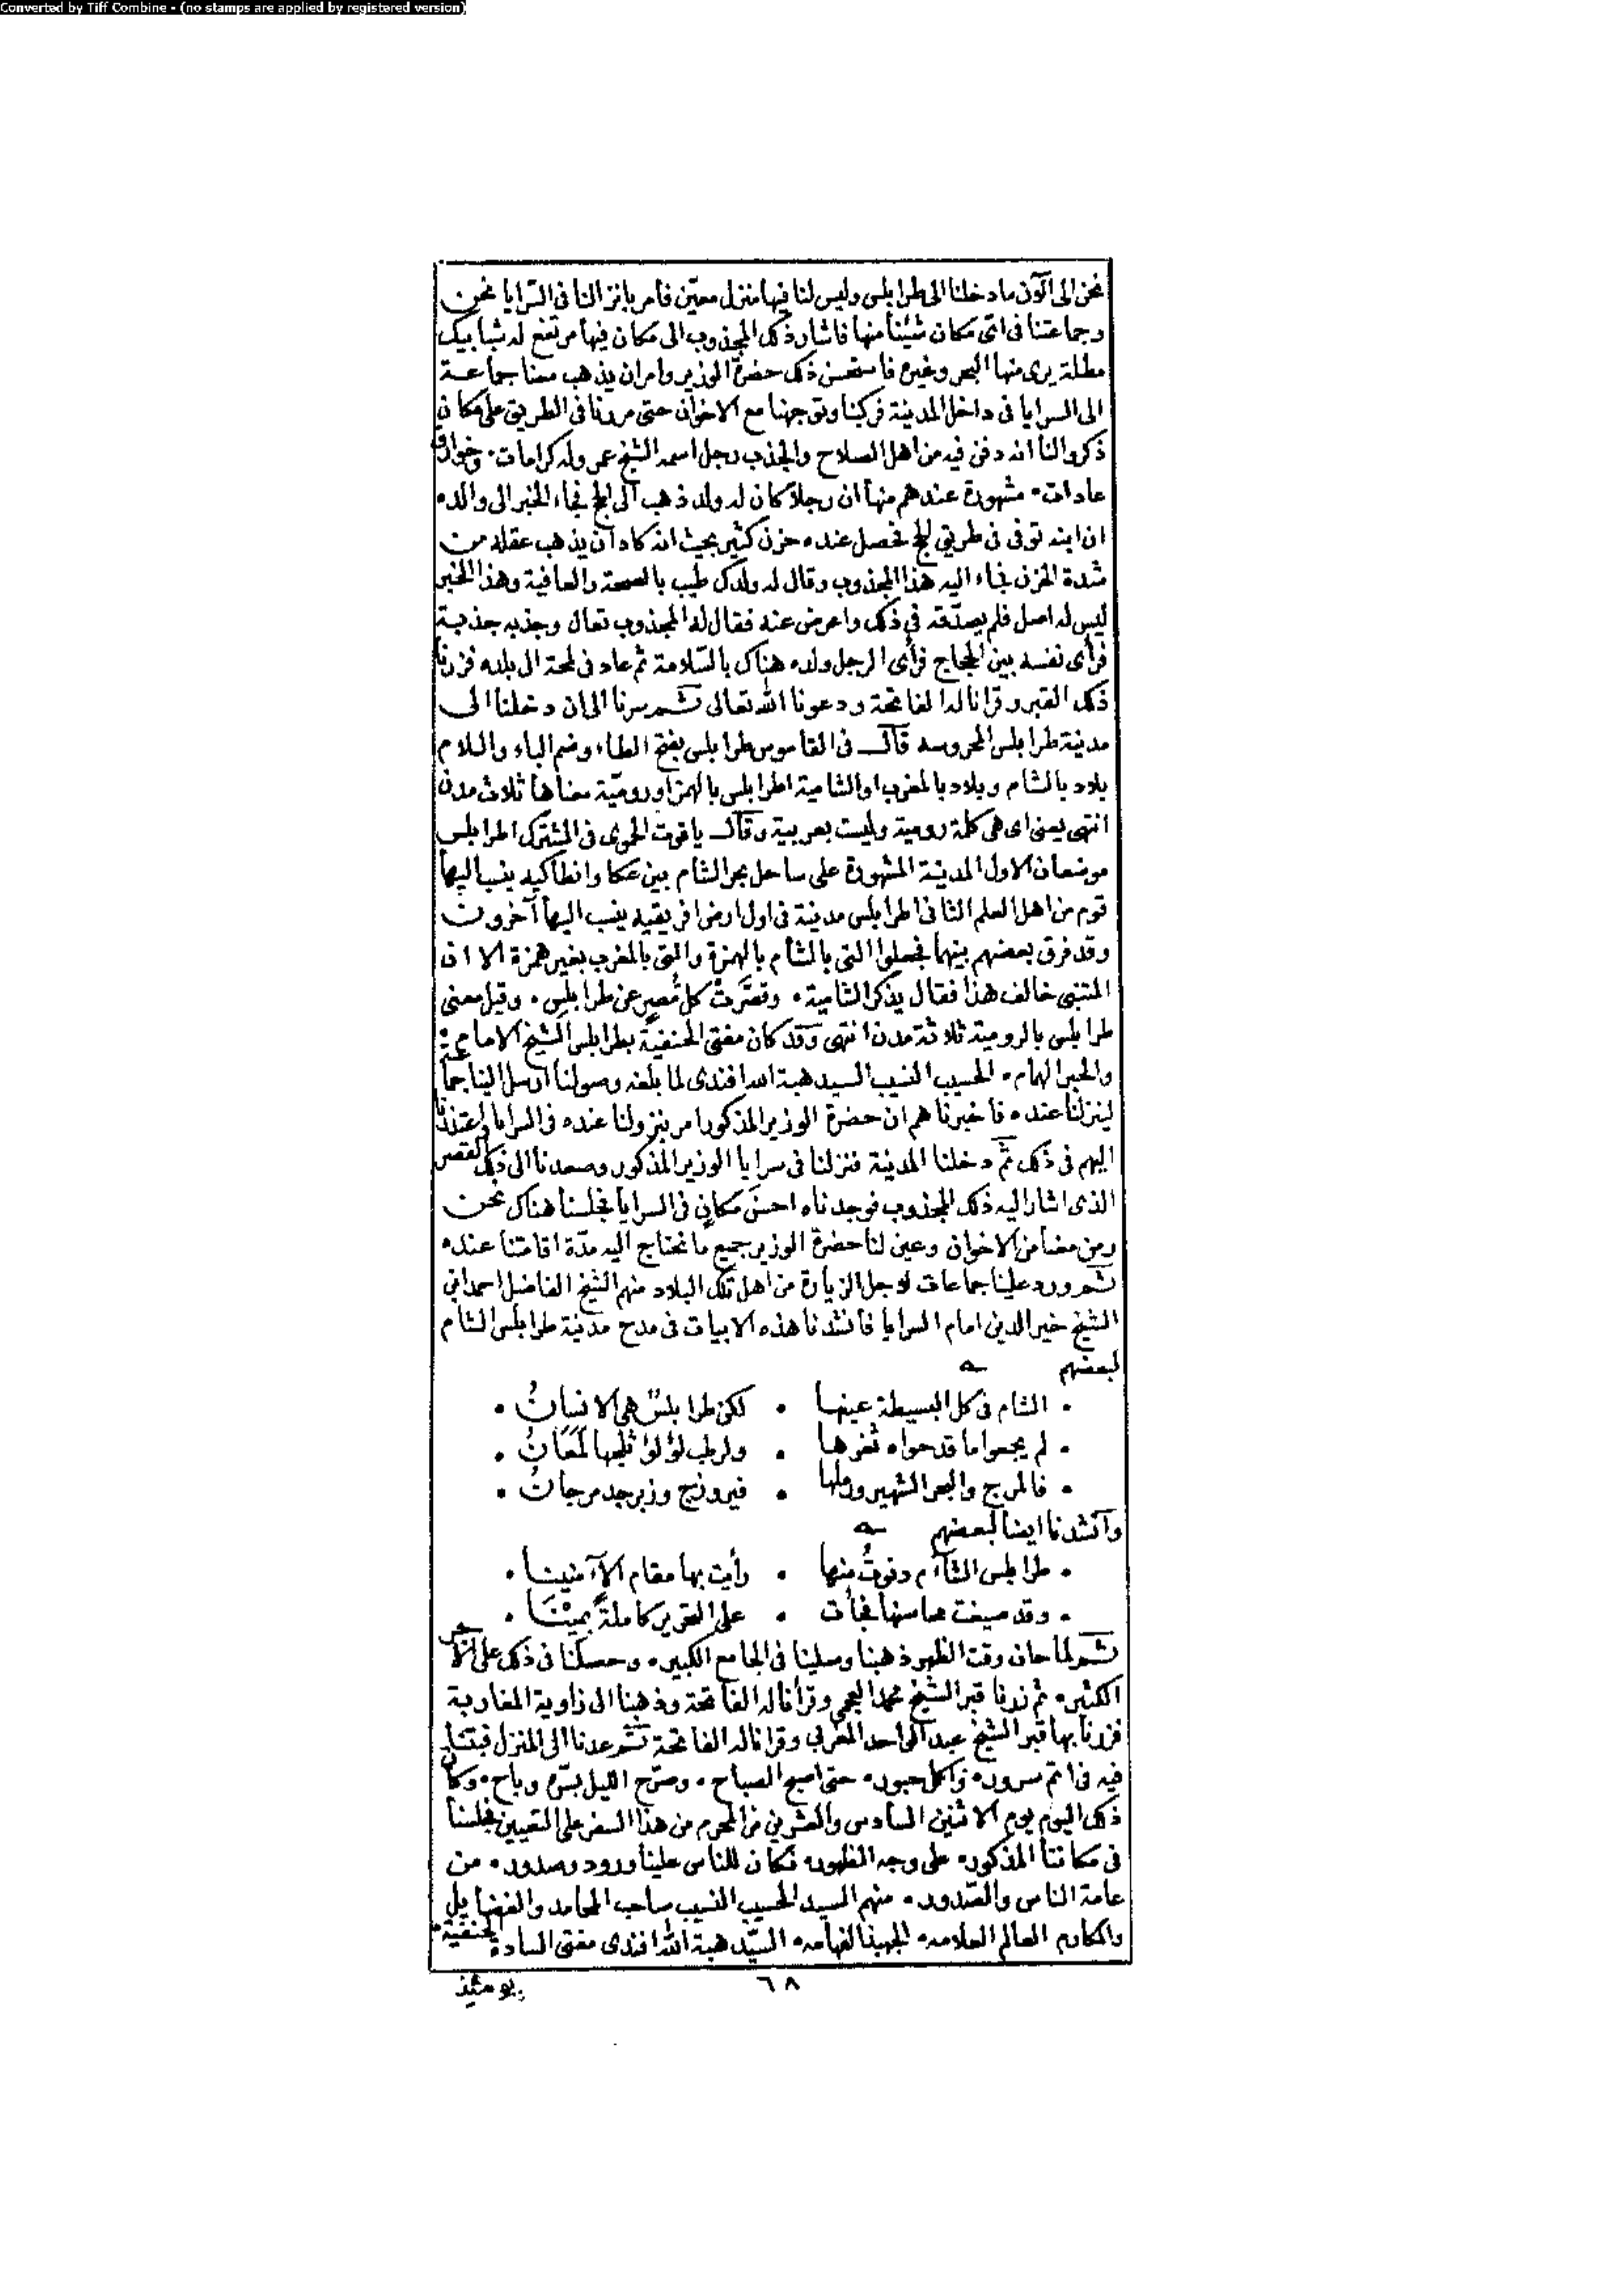 Converted by Tiff Combine - (no stamps are applied by registered version)
نحن الى الآن ما دخلنا الى طرابلس وليس لنا فيها منزل معيّن فامر بانزالنا فى السّرايا نحن
وجماعتنا فى اى مكان شئنا منها فاشار ذلك المجذوب الى مكان فيها مرتفع له شبابيك
مطلة يرى منها البحر وغيره فاستحسن ذلك حضرة الوزير وامر ان يذهب معنا جماعة
الى السرايا فى داخل المدينة فركبنا وتوجهنا مع الاخوان حتى مررنا فى الطريق على مكان
ذكروا لنا انه دفن فيه من اهل الصلاح والجذب رجل اسمه الشيخ عمر وله كرامات • وخوارق
عادات • مشهورة عندهم منها ان رجلا كان له ولد ذهب الى الحج فجاء الخبر الى والده
ان ابنه توفى فى طريق الحج فحصل عنده حزن كثير بحيث انه كاد ان يذهب عقله من
شدة الحزن فجاء اليه هذا المجذوب وقال له ولدك طيب بالصحة والعافية وهذا الخبر
ليس له اصل فلم يصدّقه فى ذلك واعرض عنه فقال له المجذوب تعال وجذبه جذبة
فرأى نفسه بين الحجاج فرأى الرجل ولده هناك بالسّلامة ثم عاد فى لمحة الى بلده فزرنا
ذلك القبر وقرانا له الفاتحة ودعونا الله تعالى ثم سرنا الى ان دخلنا الى
مدينة طرابلس المحروسه قال فى القاموس طرابلس بفتح الطاء وضم الباء واللام
بلاد بالشام وبلاد بالمغرب او الشامية اطرابلس بالهمز او روميّة معناها ثلاث مدن
انتهى يعنى اى هى كلمة رومية وليست بعربية وقال ياقوت الحموى فى المشترك اطرابلس
موضعان الاول المدينة المشهورة على ساحل بحر الشام بين عكا وانطاكيه ينسب اليها
قوم من اهل العلم الثانى اطرابلس مدينة فى اول ارض افريقيه ينسب اليها آخرون
وقد فرق بعضهم بينهما فجعلوا التى بالشام بالهمزة والتى بالمغرب بغير همزة الا ان
المتنبى خالف هذا فقال يذكر الشامية • وقصّرت كل مصر عن طرابلس • وقيل معنى
طرابلس بالرومية ثلاثة مدن انتهى وقد كان مفتى الحنفية بطرابلس الشيخ الامام
والحبر الهمام • الحسيب النسيب السيد هبة الله افندى لما بلغه وصولنا ارسل الينا جماعة
لينزلنا عنده فاخبرناهم ان حضرة الوزير المذكور امر بنزولنا عنده فى السرايا واعتذرنا
اليهم فى ذلك ثم دخلنا المدينة فنزلنا فى سرايا الوزير المذكور وصعدنا الى ذلك القصر
الذى اشار اليه ذلك المجذوب فوجدناه احسن مكان فى السرايا فجلسنا هناك نحن
ومن معنا من الاخوان وعين لنا حضرة الوزير جميع ما نحتاج اليه مدّة اقامتنا عنده
ثم ورد علينا جماعات لاجل الزيارة من اهل تلك البلاد منهم الشيخ الفاضل احمد ابن
الشيخ خير الدين امام السرايا فانشدنا هذه الابيات فى مدح مدينة طرابلس الشام
لبعضهم
• الشام فى كل البسيطة عينها • لكن طرابلسٌ هى الانسانُ •
• لم يجمعوا ما قد حواه ثغرها • ولرطب لؤلؤ ثلجها لمَعَانُ •
• فالمرج والبحر الشهير ورملها • فيروزج وزبرجد مرجانُ •
وانشدنا ايضا لبعضهم
• طرابلس الشآم دنوتُ منها • رأيت بها مقام الآمنينا •
• وقد صيغت محاسنها فجأت • على التحرير كاملةً
ثم لما حان وقت الظهر ذهبنا وصلينا فى الجامع الكبير • وحصلنا فى ذلك على الأجر
الكثير • ثم زرنا قبر الشيخ محمد العجمى وقرأنا له الفاتحة وذهبنا الى زاوية المغاربة
فزرنا بها قبر الشيخ عبد الواحد المغربى وقرانا له الفاتحة ثم عدنا الى المنزل فبتنا
فيه فى اتم سرور • واكمل حبور • حتى اصبح الصباح • وصرّح الليل بسرّه وباح • وكان
ذلك اليوم يوم الاثنين السادس والعشرين من المحرم من هذا السفر على التعيين فجلسنا
فى مكاننا المذكور • على وجه الظهور • فكان للناس علينا ورود وصدور • من
عامة الناس والصّدور • منهم السيد الحسيب النسيب صاحب المحامد والفضايل
والمكارم العالم العلامه • الجهبذ الفهامه • السيّد هبة الله افندى مفتى السادة الحنفية
٦٨
يومئذ